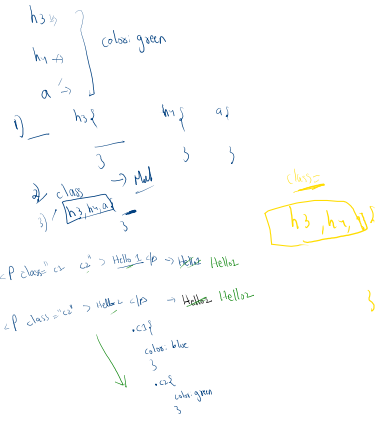 h3
h4
a
color: green
1) h3{ h4{ a{
} } }
2) class
3) h3, h4, a{
}
class
h3, h4,
}
<P class="c1 c2"> Hello 1 </p> → Hello1 Hello1
<P class="c2"> Hello 2 </p> → Hello2 Hello2
.c1{
color: blue
}
.c2{
color: green
}